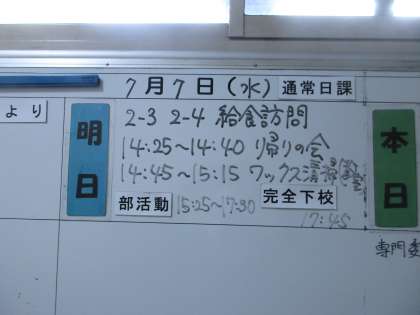 7月7日(水) 通常日課
より
明日
2-3 2-4 給食訪問
14:25～14:40 帰りの会
14:45～15:15 ワックス清掃
部活動 15:25～17:30 完全下校
17:45
本日
専門委